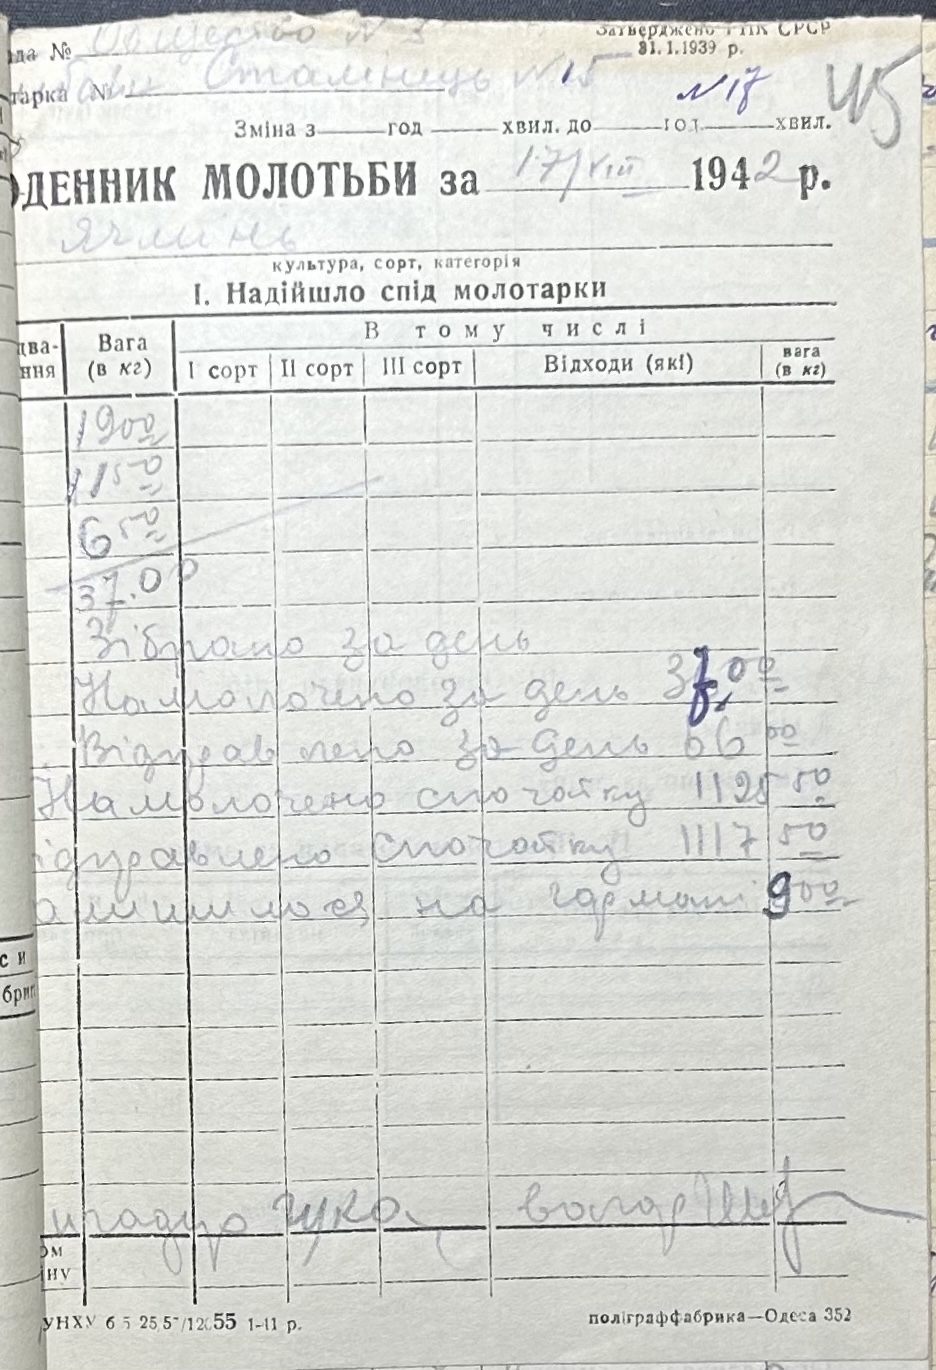 ада № Общество N 3
Затверджено РНК СРСР
31.1.1939 р.
тарка № Сталинець N 15
N 17
45
Зміна з год хвил. до год хвил.
ОДЕННИК МОЛОТЬБИ за 17/VIII 1942 р.
Ячминь
культура, сорт, категорія
I. Надійшло спід молотарки
два-ння Вага (в кг) В тому числі
I сорт II сорт III сорт Відходи (які) вага (в кг)
1900
1150
650
37.00
Зібрано за день
Намолочено за день 37,00
Відправлено за день 66 00
Намолочено спочатку 1125 50
ідправлено спочатку 1117 50
на гармані 900
си
бриг
Гука
ом
ну
УНХУ 6 5 25,5 55 1-11 р.
поліграффабрика—Одеса 352